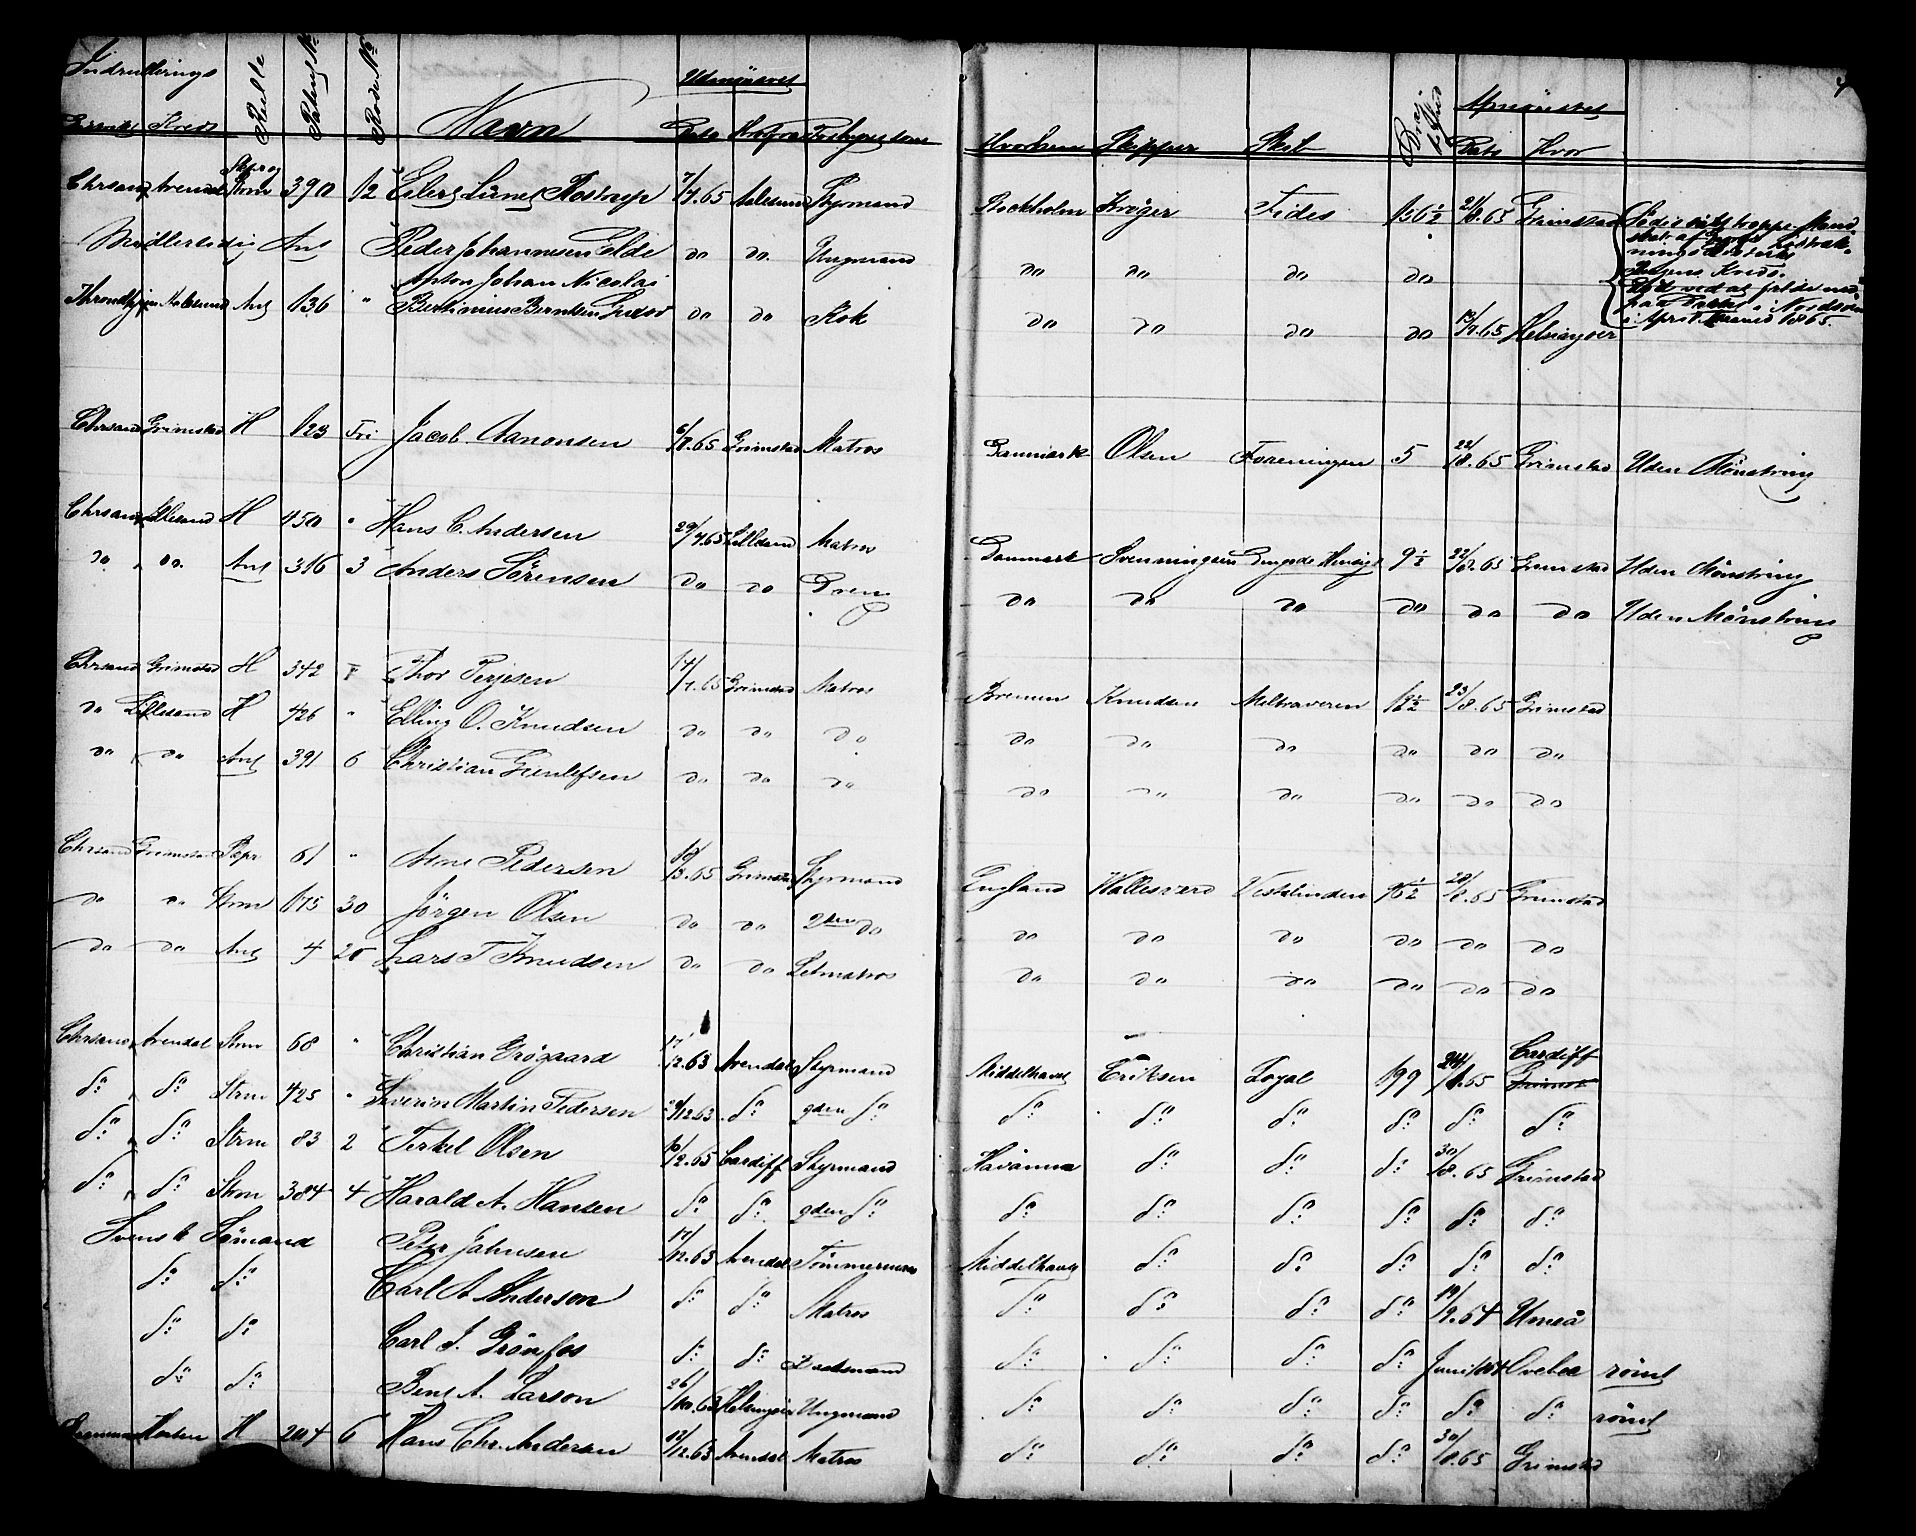 Indrullerings Rulle Patent No Rode No Navn Udmönstret Drægtighed Afmönstret 4
Kreds Dato Hvorfra Hvorhen Skipper Skib Dato Hvor
Chrsand Arendal Strm 390 12 Eilert Lunes Rostrup 7/4.65 Aalesund Styrmand Stockholm Kröger Fides 156½ 21/8.65 Grimstad
Midlertidig Ant Peder Johannesen Elde do do. Ungmand do do do do
Throndhjem Aalesund Ant 136 " Anton Johan Nicolai Berthinius Berntsen do do Kok do do do do 13/7.65 Helsingoer
i April Maaned 1865.
Chrsand Grimstad H 123 Fri Jacob Aanonsen 6/7.65 Grimstad Matros Danmark Olsen Foreningen 5 22/8.65 Grimstad Uden Mönstring
Chrsand Lillesand H 450 " Hans C. Andersen 29/7.65 Lillesand Matros Danmark Svenningsen Gengode Hensigt 9½ 22/8.65 Grimstad Uden Mönstring
do do. Ant 316 3 Anders Sörensen do do Dreng do do do do do do Uden Mönstring
Chrsand Grimstad H 342 F Thor Terjesen 14/7.65 Grimstad Matros Bremen Knudsen Meltraveren 18½ 23/8.65 Grimstad
do Lillesand H 426 " Elling O. Knudsen do do do do do do do do do
do do Ant 391 6 Christian Gunlefsen do do do do do do do do do
Chrsand Grimstad Papr 61 " Arne Pedersen 10/3.65 Grimstad Styrmand England Hallesverd Vestalinden 96½ 28/8.65 Grimstad
do do Strm 175 30 Jörgen Olsen do do 2den do do do do do do do
do do Ant 4 20 Lars T Knudsen do do Letmatros do do do do do do
Chrsand Arendal Strm 68 " Christian Grögaard 17/12.63 Arendal Styrmand Middelhavet Eriksen Loyal 199 24/1.65 Cardiff Grimst
do do Strm 425 " Severin Martin Pedersen 29/12.63 do 2den do do do do do do do
do do Strm 83 2 Terkel Olsen 10/2.65 Cardiff Styrmand Havanna do do do 30/8.65 Grimstad
do do Strm 384 4 Harald A. Hansen do do 2den do do do do do do do
Svensk Sömand Peter Johnsen 17/12.63 Arendal Tömmermand Middelhavet do do do do do
do do Carl A Anderson do do Matros do do do do 19/9.64 Umeå
do do Carl J. Grönfos do do do do do do Juni 1864 römt
do do Bent A. Larson 26/10.63 Helsingör Ungmand do do do do do do römt
Horten H 204 6 Hans Chr. Andersen 12/12.63 Arendal Matros do do do do 30/8.65 Grimstad